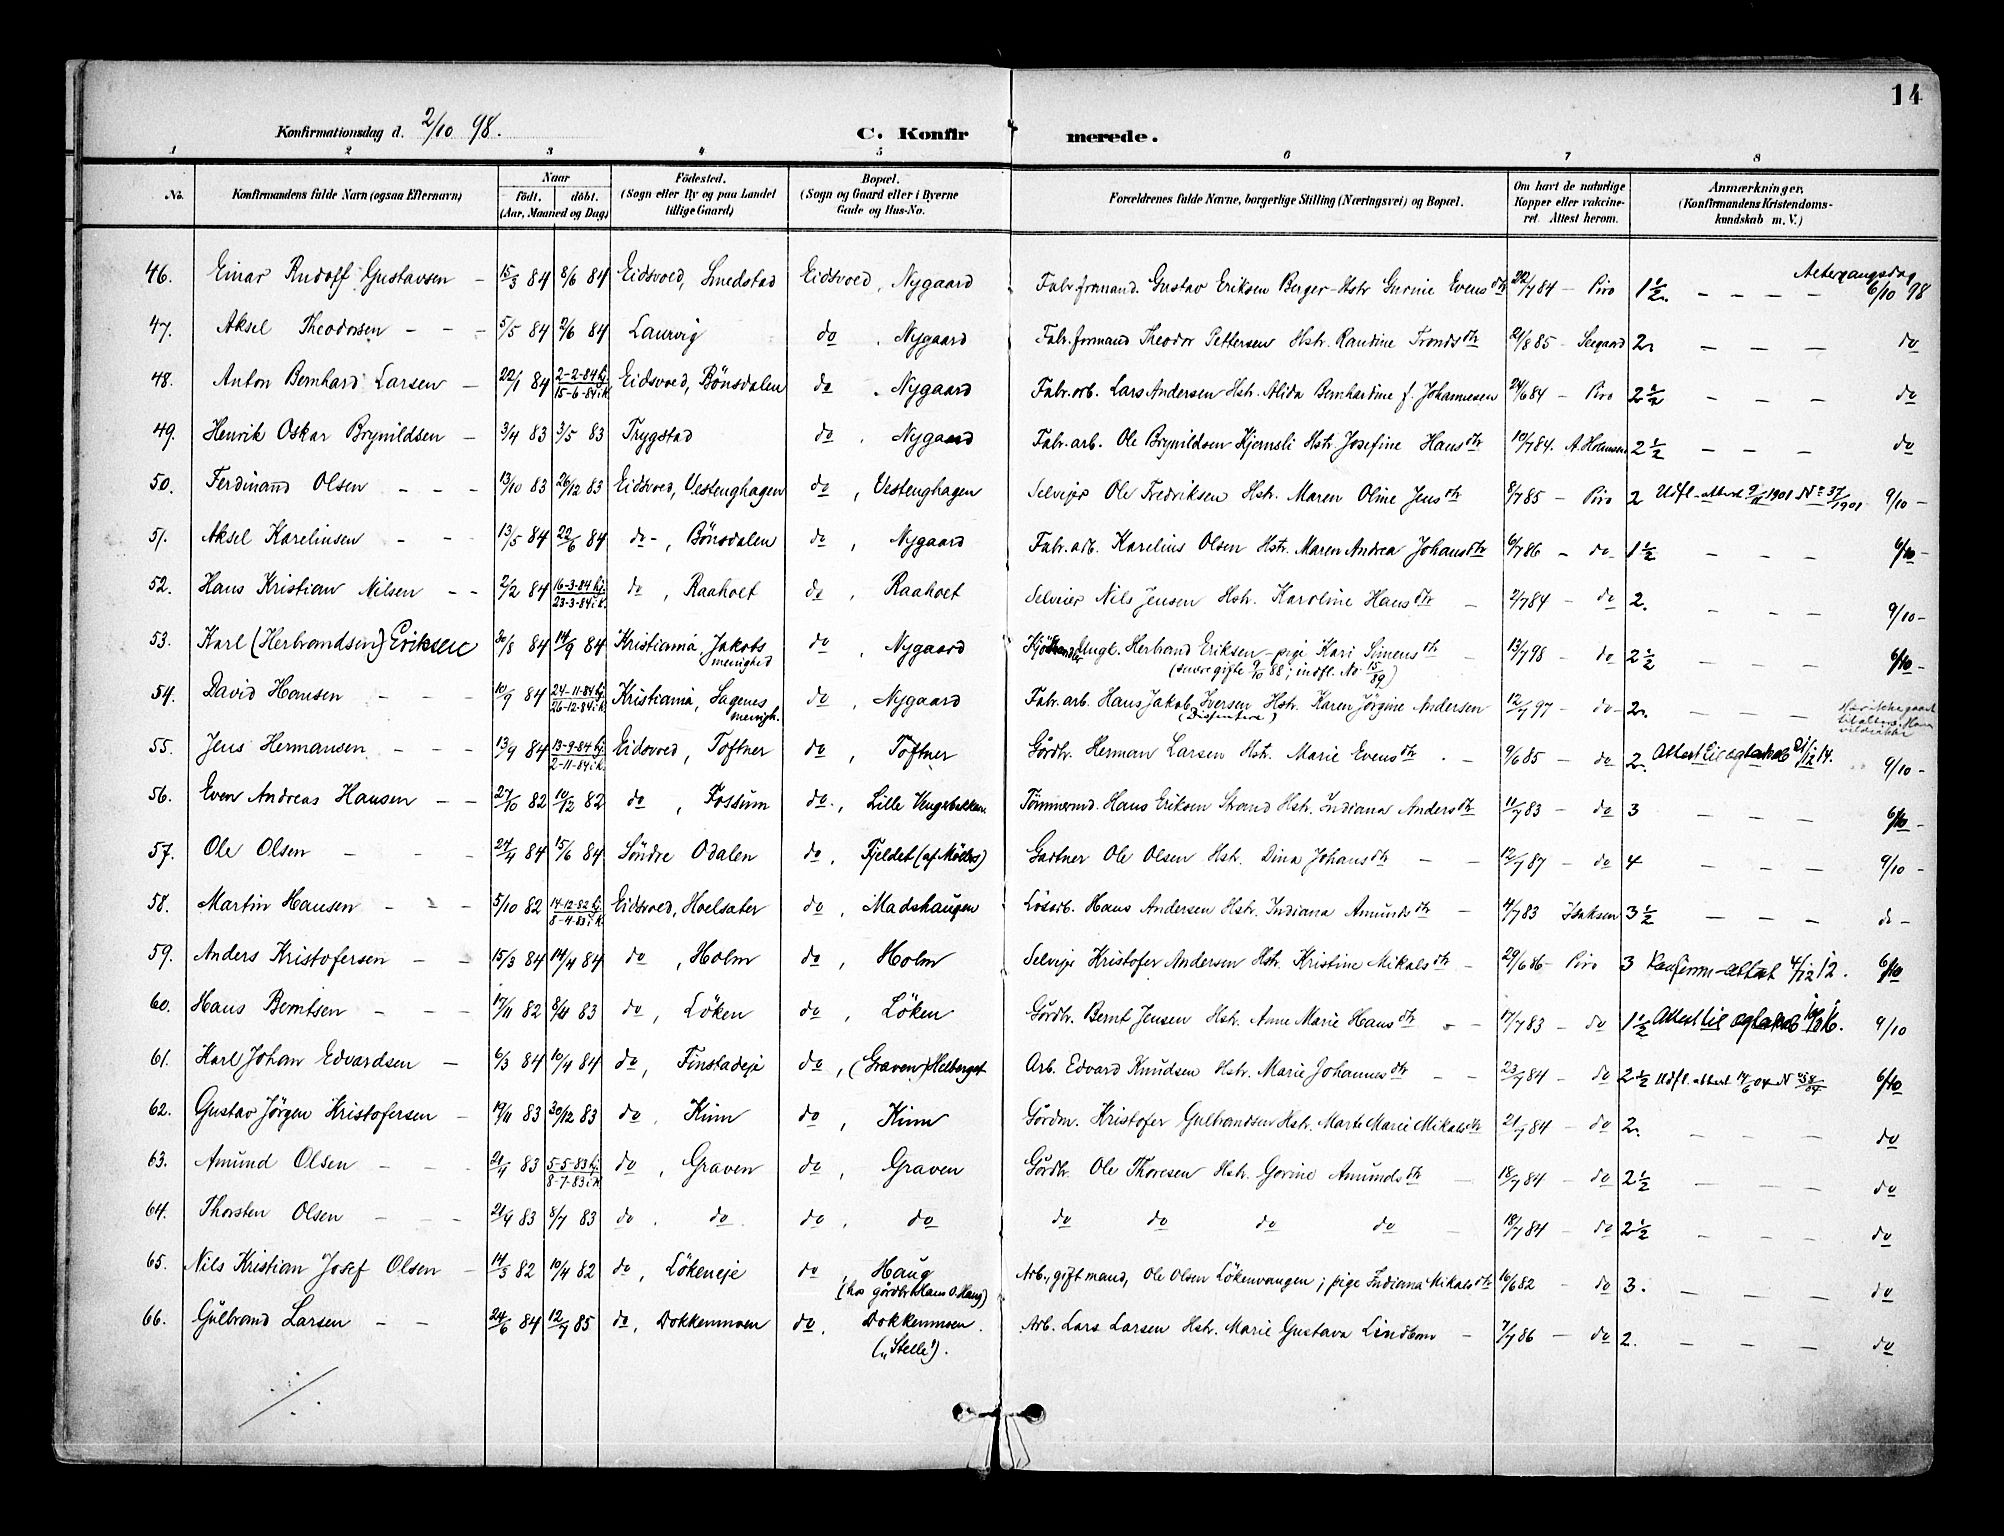 14
Konfirmationsdag d. 2/10 98. C. Konfirmerede.
1 2 3 4 5 6 7 8
No. Konfirmandens fulde Navn (ogsaa Efternavn) Naar födt. döbt. (Aar, Maaned og Dag) Födested. (Sogn eller By og paa Landet tillige Gaard) Bopæl. (Sogn og Gaard eller i Byerne Gade og Hus-No. Forældrenes fulde Navne, borgerlige Stilling (Næringsvei) og Bopæl. Om havt de naturlige Kopper eller vakcineret. Attest herom. Anmærkninger. (Konfirmandens Kristendomskundskab m. V.)
46. Einar Rudolf Gustavsen – 15/3 84 8/6 84 Eidsvold, Smedstad Eidsvold, Nygaard Fabr.formand. Gustav Eriksen Berger – Hstr Gurine Evens dtr 22/7 84 – Piro 1 1/2 – – – – Altergangsdag 6/10 98
47. Aksel Theodorsen – – – 5/5 84 2/6 84 Laurvig do , Nygaard Fabr.formand Theodor Pettersen Hstr. Randine Tronds dtr 21/8 85 – Seegaard 2. – – – do
48. Anton Bernhard Larsen – 22/1 84 2-2-84 hj. 15-6-84 i K. Eidsvold, Bönsdalen do , Nygaard Fabr.arb. Lars Andersen Hstr. Alida Bernhardine f. Johannesen 24/6 84 – Piro 2 1/2 – – – do
49. Henrik Oskar Brynildsen – 3/4 83 3/5 83 Trygstad do , Nygaard Fabr.arb. Ole Brynildsen Kjernsli Hstr. Josefine Hans dtr 10/7 84. A. Hansen 2 1/2 – – – do
50. Ferdinand Olsen – – – 13/10 83 26/12 83 Eidsvold, Vestenghagen do , Vestenghagen Selveier Ole Fredriksen Hstr. Maren Oline Jens dtr 8/7 85 – Piro 2 Udfl.-attest 9/11 1901 No 37/1901. 9/10 –
51. Aksel Karelinsen – – 13/5 84 22/6 84 do –, Bönsdalen do , Nygaard Fabr.arb. Karelius Olsen Hstr. Maren Andrea Johans dtr 6/7 86 – do 1 1/2 – – – 6/10 –
52. Hans Kristian Nilsen – – 2/2 84 16-3-84 hj. 23-3-84 i K. do , Raaholt do , Raaholt Selveier Nils Jensen Hstr. Karoline Hans dtr – 2/7 84 – do 2. – – – 9/10 –
53. Karl (Herbrandsen) Eriksen 30/8 84 14/9 84 Kristiania, Jakobs menighed do , Nygaard Ungk. Herbrand Eriksen – pige Kari Simens dtr – (snare gifte 9/10 88; indfl. No 15/89) 13/7 98 – do 2 1/2 – – – 6/10 –
54. David Hansen – – – 10/9 84 24-11-84 hj. 26-12-84 i K. Kristiania, Sagenes menigh. do , Nygaard Fabr.arb. Hans Jakob Iversen Hstr. Karen Jörgine Andersen (Dissentere) 12/7 97 – do – 2. – – –
55. Jens Hermansen – – – 13/9 84 13-9-84 hj. 2-11-84 i K. Eidsvold, Toftner do , Toftner Gårdbr. Herman Larsen Hstr. Marie Evens dtr . – 9/6 85 – do 2. Attest til egteskab 21/12 14. 9/10 –
56. Even Andreas Hansen – – 27/10 82 10/12 82 do , Fossum do. , Lille Vengerbakken Tömmermd. Hans Eriksen Strand Hstr. Indiana Anders dtr 11/7 83 – do 3 – – – 6/10 –
57. Ole Olsen – – – 24/4 84 15/6 84 Söndre Odalen do , Fjeldet (af Mölers) Gartner Ole Olsen Hstr. Dina Johans dtr – – 12/7 87 – do 4 – – – 9/10 –
58. Martin Hansen – – – 5/10 82 14-12-82 hj. 8-4-83 i K. Eidsvold, Hoelsæter do , Madshaugen Lösarb. Hans Andersen Hstr. Indiana Amunds dtr – 4/7 83 Isaksen 3 1/2 – – – do –
59. Anders Kristofersen – – 15/3 84 14/4 84 do , Holm do , Holm Selveier Kristofer Andersen Hstr. Kristine Mikals dtr – 29/6 86 – Piro 3 Konfirm-attest 4/12 12. 6/10
60. Hans Berntsen – – – 17/11 82 8/4 83 do , Löken do , Löken Gårdbr. Bernt Jensen Hstr. Anne Marie Hans dtr – – 17/7 83 – do 1 1/2 Attest til egteskab 9/10
61. Karl Johan Edvardsen – 6/3 84 10/4 84 do , Finstadeje do , (Graven) Melberget Arb. Edvard Knudsen Hstr. Marie Johannes dtr – – 23/7 84 – do 2 1/2 Udfl.-attest 14/6 04 6/10
62. Gustav Jörgen Kristofersen – 17/11 83 30/12 83 do , Kinn do , Kinn Gårdm. Kristofer Gulbrandsen Hstr. Marte Marie Mikals dtr 21/7 84 – do 2. – – – do
63. Amund Olsen – – – 21/4 83 5-5-83 hj. 8-7-83 i K. do , Graven do , Graven Gårdbr. Ole Thoresen Hstr. Gorine Amunds dtr – 18/7 84 – do 2 1/2 – – – do
64. Thorsten Olsen – – – 21/4 83 8/7 83 do , do. do , do do do do do – 18/7 84 – do 2 1/2 – – – do
65. Nils Kristian Josef Olsen – 14/3 82 10/4 82 do , Lökeneje do , Haug (hos gårdbr. Hans O. Haug) Arb., gift mand, Ole Olsen Lökenvangen; pige Indiana Mikals dtr 16/6 82 – do 3. – – – do
66. Gulbrand Larsen – – 24/6 84 12/7 85 do , Dokkenmoen do , Dokkenmoen. („Stelle"). Arb. Lars Larsen Hstr. Marie Gustava Lindbom – 7/7 86 – do 2. – – – do